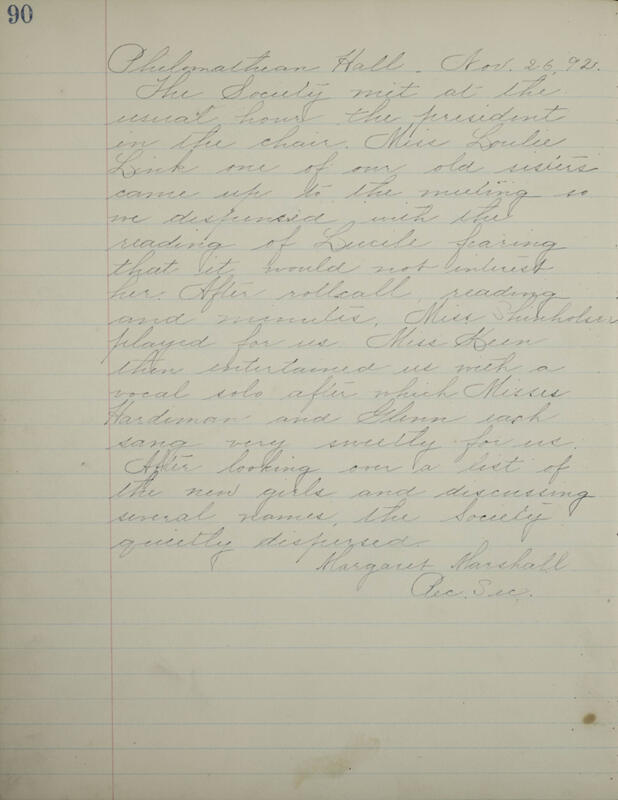 90
Philomathean Hall. Nov. 26, 92.
The Society met at the
usual hour the president
in the chair. Miss Loulie
Link one of our old sisters
came up to the meeting so
we dispensed with the
reading of Lucile fearing
that it would not interest
her. After rollcall, reading
and minutes, Miss Shinholser
played for us. Miss Keen
then entertained us with a
vocal solo after which Misses
Hardeman and Glenn each
sang very sweetly for us.
After looking over a list of
the new girls and discussing
several names, the Society
quietly dispersed.
Margaret Marshall
Rec. Sec.